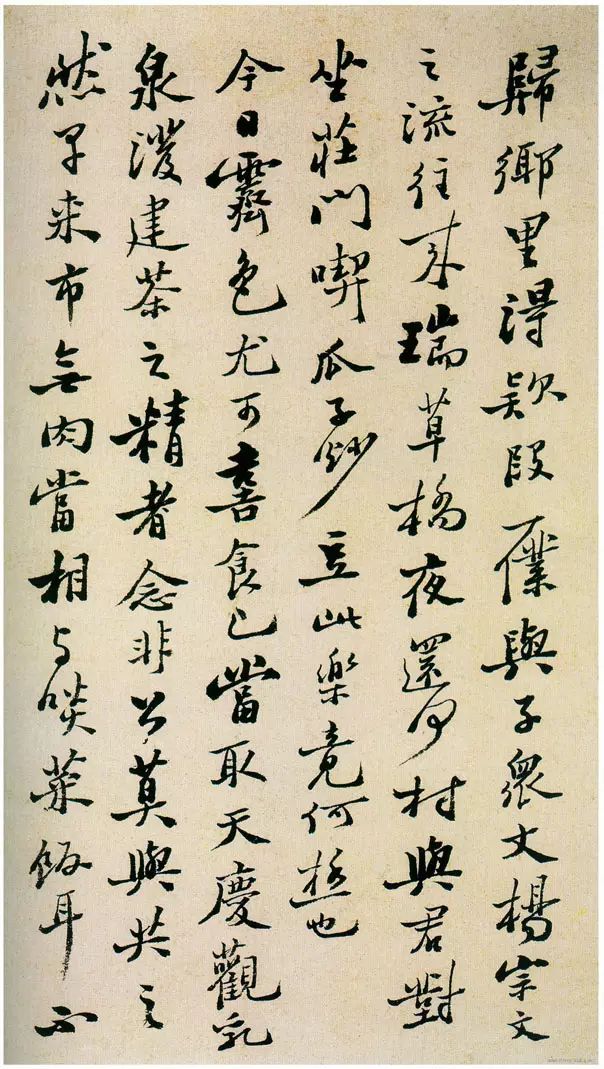 歸鄉里得欵段一僕與子衆丈楊宗文
之流往来瑞草橋夜還何村與君對
坐莊門喫瓜子炒豆此樂竟何極也
今日霽色尤可喜食已當取天慶觀乳
泉潑建茶之精者念非公莫與共之
然早来市無肉當相与啖菜飯耳不